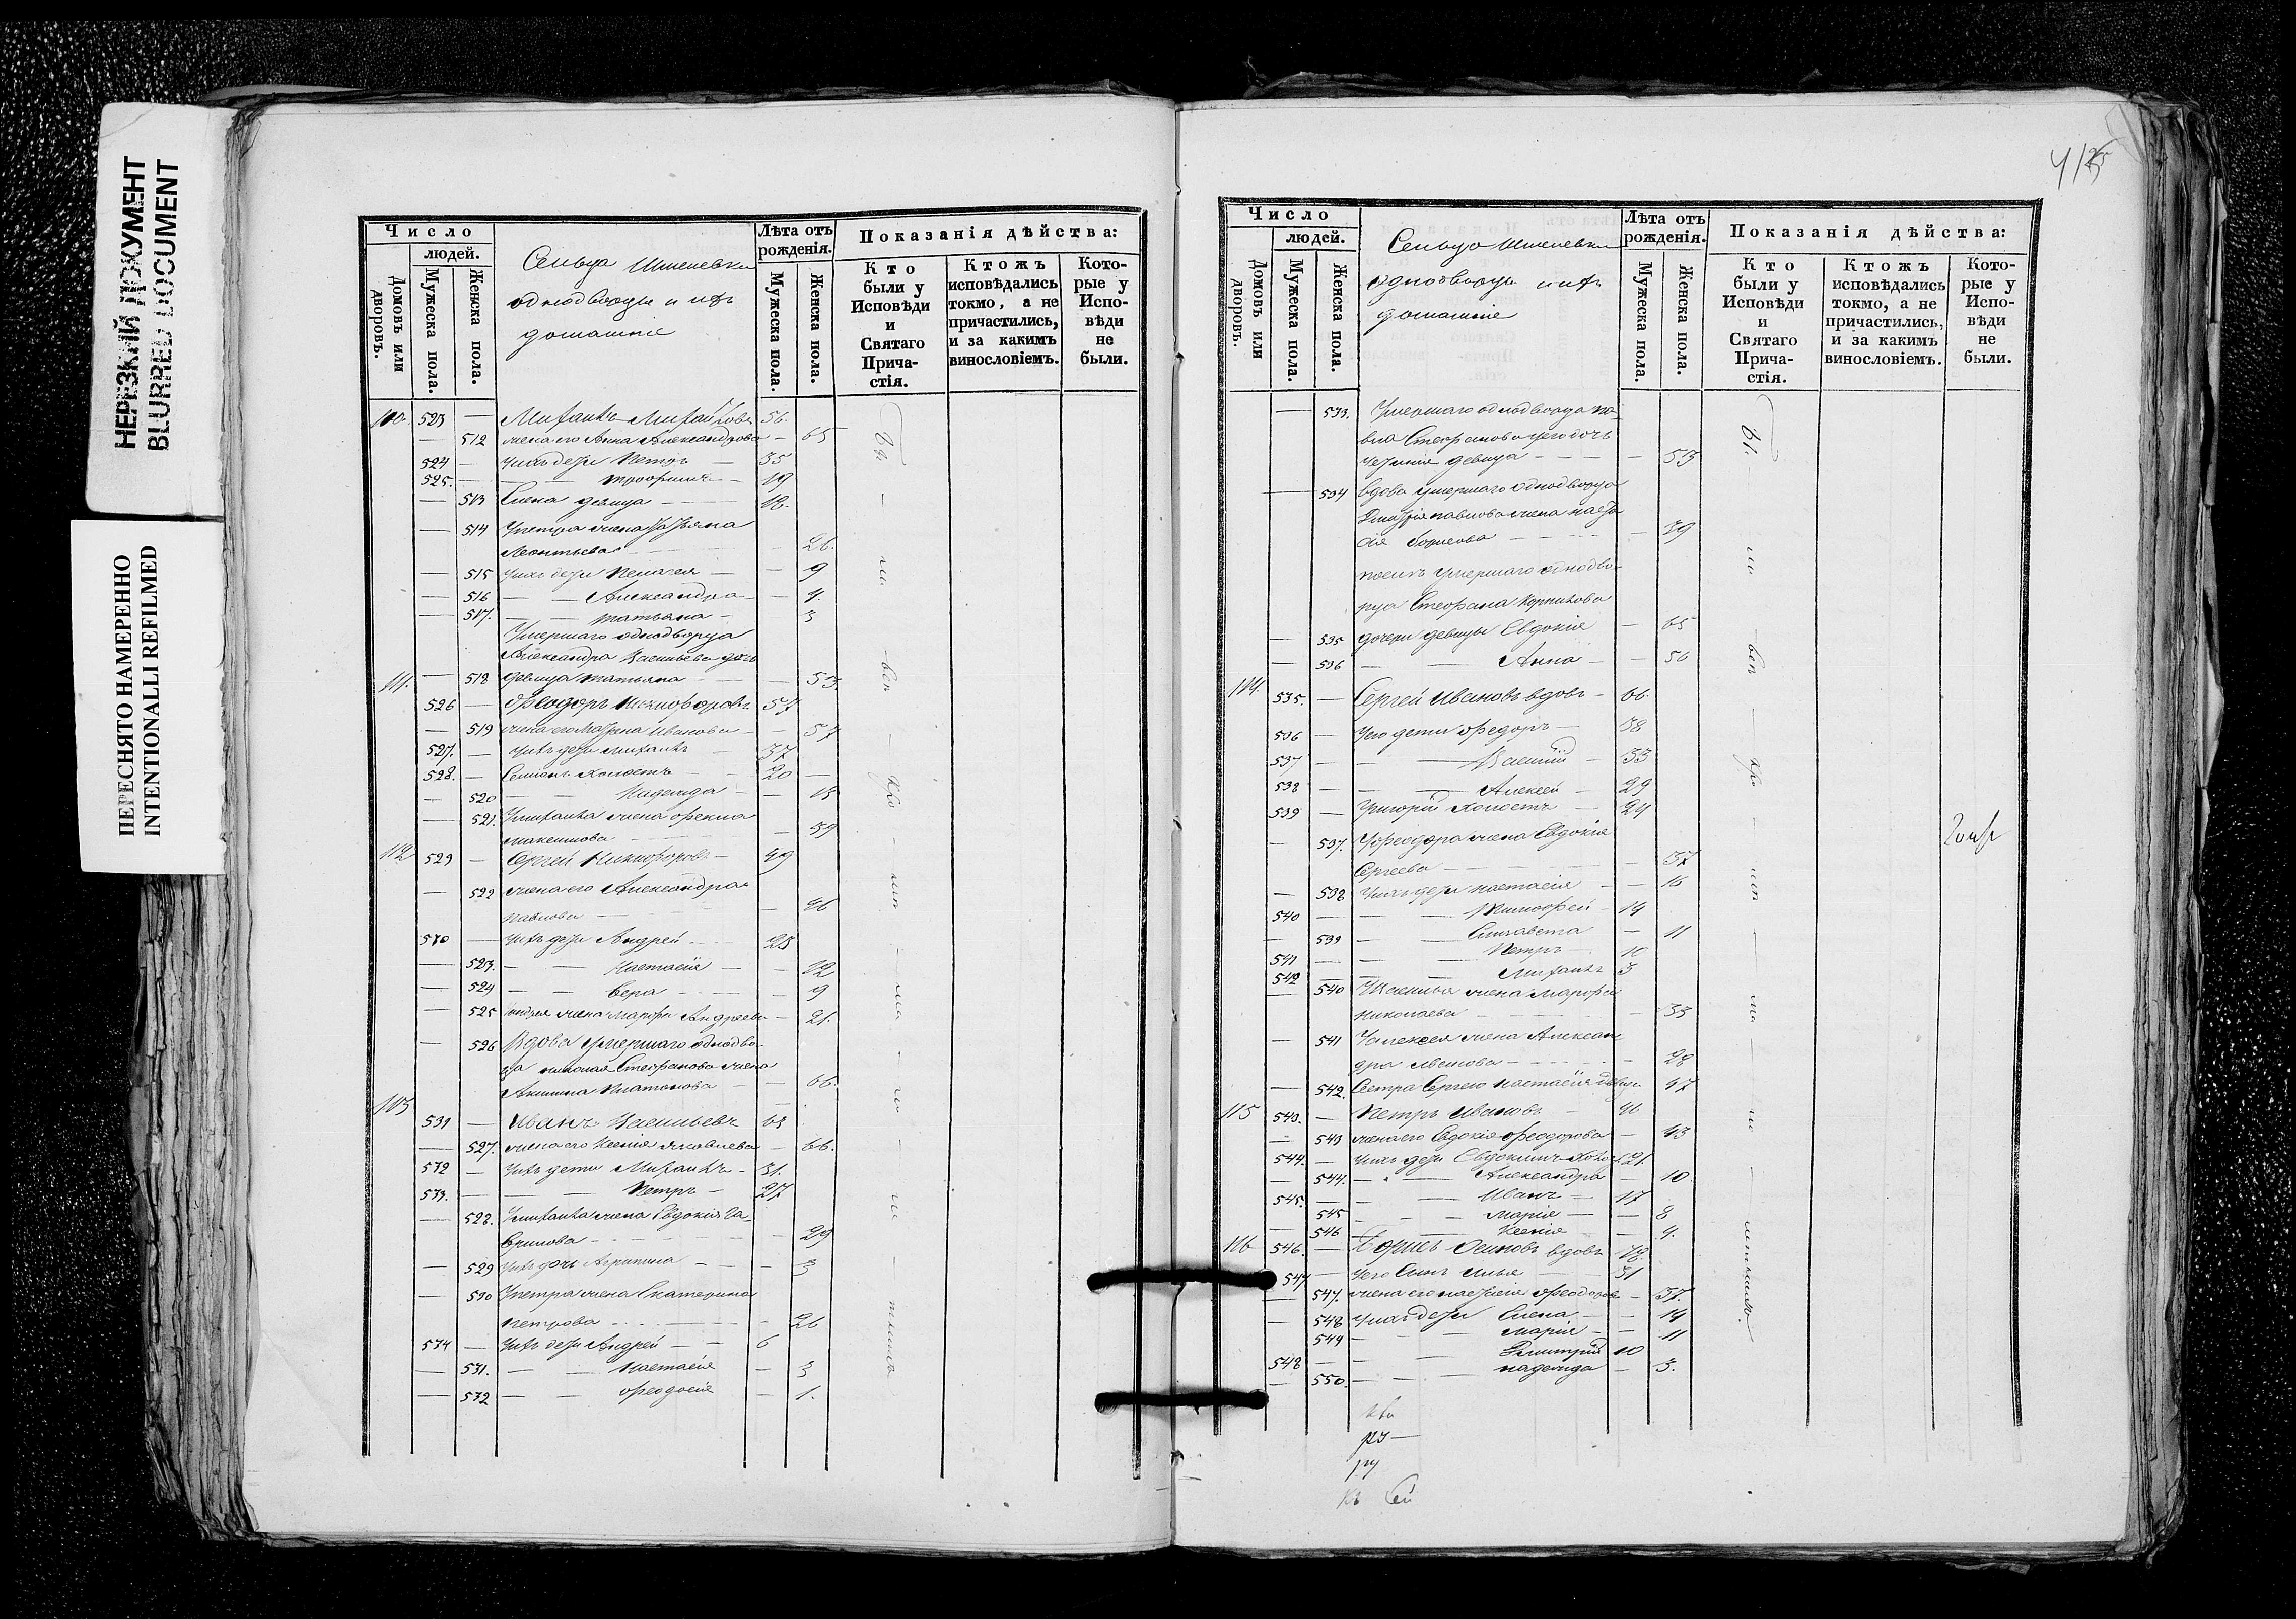 НЕРЕЗКИЙ ДОКУМЕНТ
BLURRED DOCUMENT
ПЕРЕСНЯТО НАМЕРЕННО
INTENTIONALLI REFILMED
Число
людей.
Домовъ или дворовъ.
Мужеска пола.
Женска пола.
Сельца
однодворцы и ихъ
домашніе
Лѣта отъ рожденія.
Мужеска пола.
Женска пола.
Показанія дѣйства:
Кто были у Исповѣди и Святаго Прича-стія.
Ктожъ исповѣдались токмо, а не причастились, и за какимъ винословіемъ.
Кото-рые у Испо-вѣди не были.
110 523 — Михаилъ Михайловъ 56.
— 512 жена его Анна Александрова — 65
524 — Ихъ дети Петръ — 35
525. — — Трофимъ — 19
— 513 Елена девица — 18.
— 514 У Петра жена Татьяна
Леонтьева — 26.
— 515 Ихъ дети Пелагея — 9
— 516 — — Александра — 4.
— 517. — — Татьяна — 3
Умершаго однодворца
Александра Васильева дочь
— 518 девица Татьяна — 53.
111. 526 — Феодоръ Никифоровъ 57
— 519 жена его Матрена Иванова — 57
527. — Ихъ дети Михаилъ — 37
528. — Семенъ холостъ — 20
— 520 — — Надежда — 15
— 521. У Михаила жена Фекла
Максимова — 39
112 529 — Сергей Никифоровъ — 49
— 522 жена его Александра
Павлова — 46
530 — Ихъ дети Андрей 23
— 523. — — Настасія — 12
— 524 — — Вера — 9
— 525 Андрея жена Марфа Андреева — 21.
— 526 Вдова умершаго однодвор
ца Николая Стефанова жена
Акилина Платонова — 66.
113
531 — Иванъ Васильевъ 63
— 527. жена его Ксенія Яковлева — 66.
532 — Ихъ дети Михаилъ — 31.
533. — — Петръ — 27
— 528. У Михаила жена Евдокія Га-
врилова — 29
— 529 Ихъ дочь Агрипина — 3
— 530 У Петра жена Екатерина
Петрова — 26
534 — Ихъ дети Андрей — 6
— 531. — — Настасія — 3
— 532 — — Феодосія — 1.
Число
людей.
Домовъ или дворовъ.
Мужеска пола.
Женска пола.
Сельца
однодворцы и ихъ
домашніе
Лѣта отъ рожденія.
Мужеска пола.
Женска пола.
Показанія дѣйства:
Кто были у Исповѣди и Святаго Прича-стія.
Ктожъ исповѣдались токмо, а не причастились, и за какимъ винословіемъ.
Кото-рые у Испо-вѣди не были.
— 533. Умершаго однодворца Па-
вла Стефанова дочь
девица — 53
— 534 Вдова умершаго однодворца
Дмитрія Павлова жена Наста
сія Борисова — 39
умершаго однодво-
рца Стефана
— 535 дочери девицы Евдокія — 65
— 536 — — Анна — 50
114. 535. — Сергей Ивановъ вдовъ — 66.
536 — У его дети Федоръ — 38
537 — — Василій — 33
538 — — Алексей — 29
539 — Григорій холостъ — 24
— 537. У Феодора жена Евдокія
Сергеева — 37
— 538 Ихъ дети Настасія — 16
540 — — Тимофей — 14
— 539 — — Елизавета — 11
541 — — Петръ — 10
542 — — Михаилъ 3
— 540 У Василья жена Марфа
Николаева — 33
— 541 У Алексея жена Алексан
дра — 28
— 542. Сестра Сергею Настасія девица 47
115 543. — Петръ Ивановъ — 46
— 543 жена его Евдокія Феодорова — 43
544. — Ихъ дети Евдокимъ холос 21.
— 544. — — Александра — 10
545. — — Иванъ — 17
— 545 — — Марія — 8
— 546 — — Ксенія — 4.
116 546. — Борисъ Осиповъ вдовъ 78.
547 — У его сынъ Илья — 31
— 547. жена его Настасія Феодорова — 37.
— 548 Ихъ дети Елена — 14
— 549 — — Марія — 11
548 — — Дмитрій 10
— 550. — — Надежда — 3.